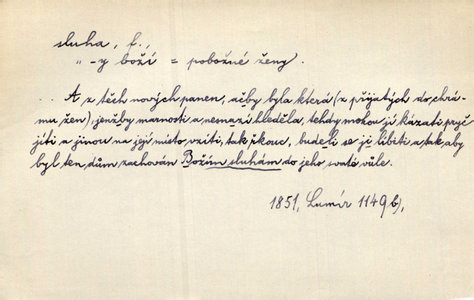 sluha, f.,
" -y boží = pobožné ženy.
.. A z těch nových panen, ačby byla která (z přijatých do chrá-
mu žen) jenžby marnosti a nemazí hleděla, tehdy mohou jí kázati pryč
jíti a jinou na její místo vzíti, tak řkouc, budeli se jí líbiti a tak, aby
byl ten dům zachován Božím sluhám do jeho svaté vůle.
1851, Lumír 1149 b),